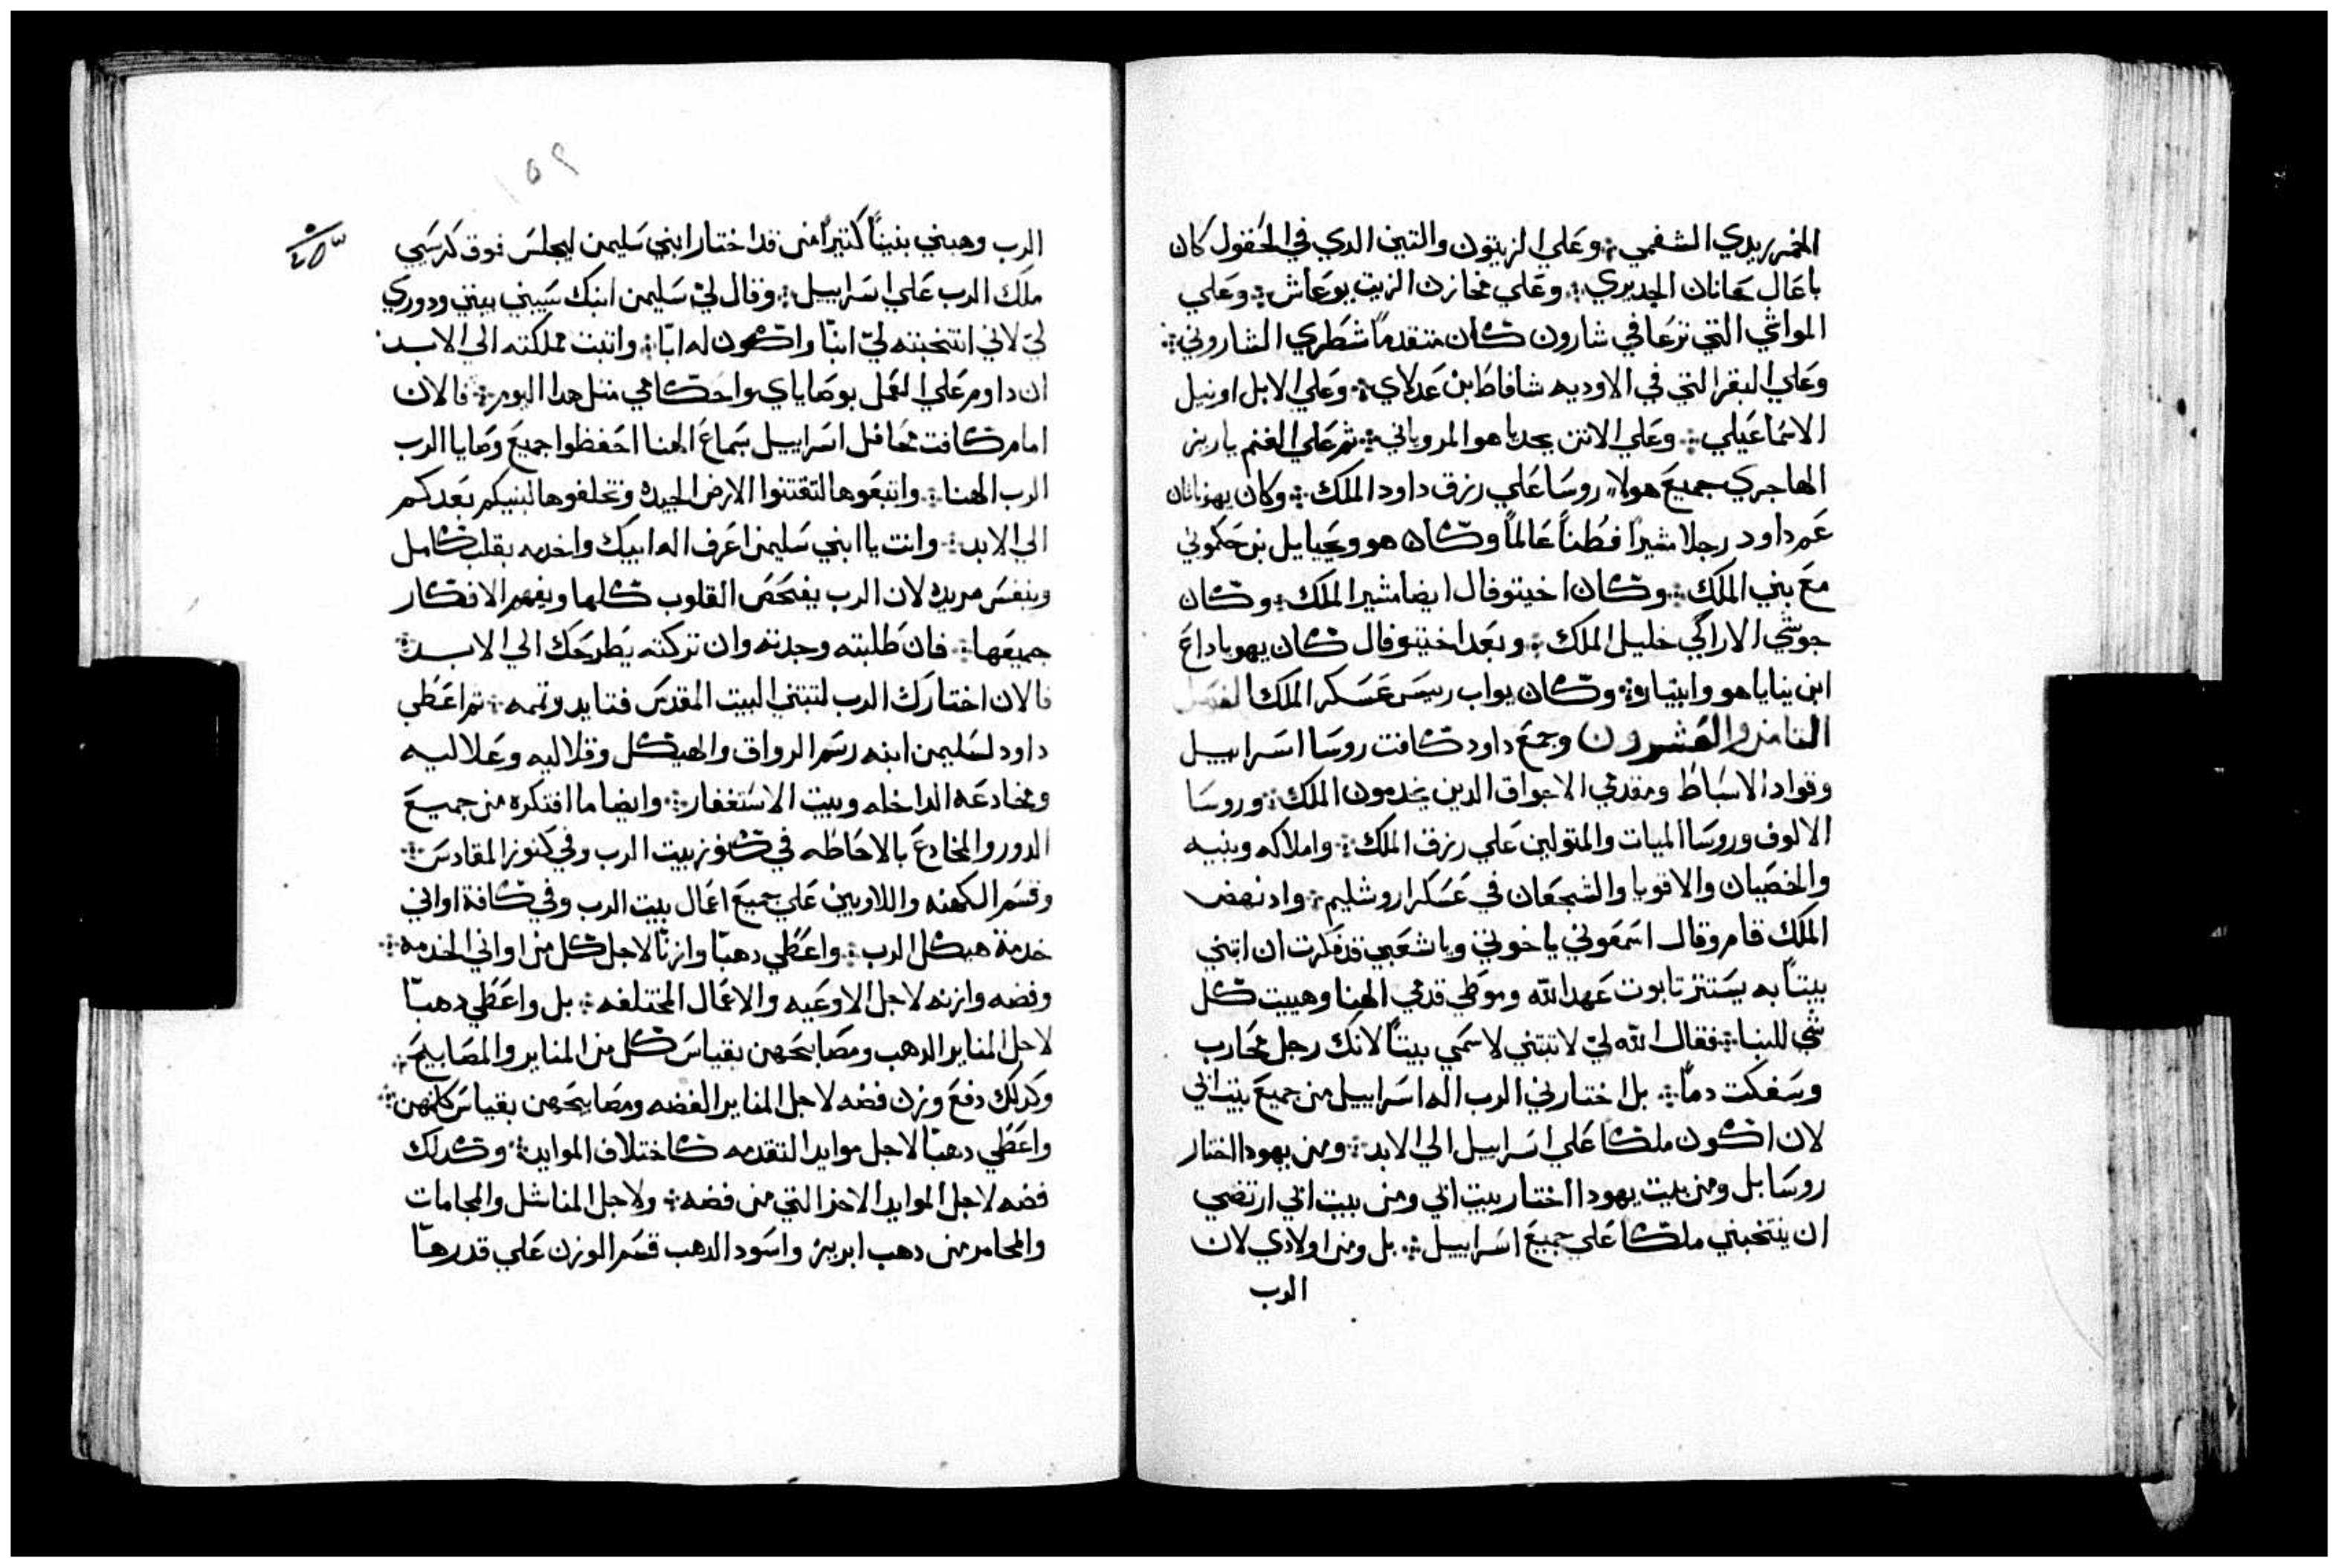 الخمر زبدي الشفمي ⁘ وعلي الزيتون والتين الدي في الحقول كان
باعال حانان الجديري ⁘ وعلي مخازن الزيت يوعاش ⁘ وعلي
المواشي التي ترعا في شارون كان متقدما شطري الشاروني ⁘
وعلي البقر التي في الاوديه شافاط بن عدلاي ⁘ وعلي الابل اوبيل
الاسماعيلي ⁘ وعلي الاتن يحدياهو المروياني ⁘ ثم علي الغنم ياريز
الهاجري جميع هولاء روسا علي رزق داود الملك ⁘ وكان يهوناتان
عم داود رجلا مشيرا فطنا عالما وكان هو ويحيايل بن حكموني
مع بني الملك ⁘ وكان اخيتوفال ايضا مشير الملك ⁘ وكان
حوشي الاراكي خليل الملك ⁘ وبعد اخيتوفال كان يهوياداع
ابن بناياهو وابيتار ⁘ وكان يواب رييس عسكر الملك الفصل
التامن والعشرون وجمع داود كافت روسا اسراييل
وقواد الاسباط ومقدمي الاجواق الدين يخدمون الملك ⁘ وروسا
الالوف وروسا الميات والمتولين علي رزق الملك ⁘ واملاكه وبنيه
والخصيان والاقويا والشجعان في عسكر اروشليم ⁘ واد نهض
الملك قام وقال اسمعوني ياخوتي وياشعبي قد فكرت ان ابتني
بيتا به يستتر تابوت عهد الله وموطي قدمي الهنا وهييت كل
شي للبنا ⁘ فقال الله لي لا تبتني لاسمي بيتا لانك رجل محارب
وسفكت دما ⁘ بل اختارني الرب اله اسراييل من جميع بيت ابي
لان اكون ملكا علي اسراييل الي الابد ⁘ ومن يهودا اختار
روسا بل ومن بيت يهودا اختار بيت ابي ومن بيت ابي ارتضي
ان ينتخبني ملكا علي جميع اسراييل ⁘ بل ومن اولادي لان
الرب
١٥٩
الرب وهبني بنينا كتيرا من قد اختار ابني سليمن ليجلس فوق كرسي
ملك الرب علي اسراييل ⁘ وقال لي سليمن ابنك سيبني بيتي ودوري
لي لاني انتخبته لي ابنا واكون له ابا ⁘ واتبت مملكته الي الابد ⁘
ان داوم علي العمل بوصاياي واحكامي متل هدا اليوم ⁘ فالان
امام كافت محافل اسراييل بسماع الهنا احفظوا جميع وصايا الرب
الرب الهنا ⁘ واتبعوها لتقتنوا الارض الجيده وتخلفوها لبنيكم بعدكم
الي الابد ⁘ وانت يا ابني سليمن اعرف اله ابيك واخدمه بقلب كامل
وبنفس مريده لان الرب يفتحص القلوب كلها ويفهم الافكار
جميعها ⁘ فان طلبته وجدته وان تركته يطرحك الي الابد ⁘
فالان اختارك الرب لتبتني البيت المقدس فتايد وتممه ⁘ تم اعطي
داود لسليمن ابنه رسم الرواق والهيكل وقلاليه وعلاليه
ومخادعه الداخله وبيت الاستغفار ⁘ وايضا ما افتكره من جميع
الدور والمخادع بالاحاطه في كنوز بيت الرب وفي كنوز المقادس ⁘
وقسم الكهنه واللاويين علي جميع اعمال بيت الرب وفي كافة اواني
خدمة هيكل الرب ⁘ واعطي دهبا وازنا لاجل كل من اواني الخدمه ⁘
وفضه وازنه لاجل الاوعيه والاعمال المختلفه ⁘ بل واعطي دهبا
لاجل المناير الدهب ومصابيحهن بقياس كل من المناير والمصابيح ⁘
وكدلك دفع وزن فضه لاجل المناير الفضه ومصابيحهن بقياس كلهن ⁘
واعطي دهبا لاجل موايد التقدمه كاختلاف الموايد ⁘ وكدلك
فضه لاجل الموايد الاخر التي من فضه ⁘ ولاجل المناشل والجامات
والمجامر من دهب ابريز واسود الدهب قسم الوزن علي قدرها